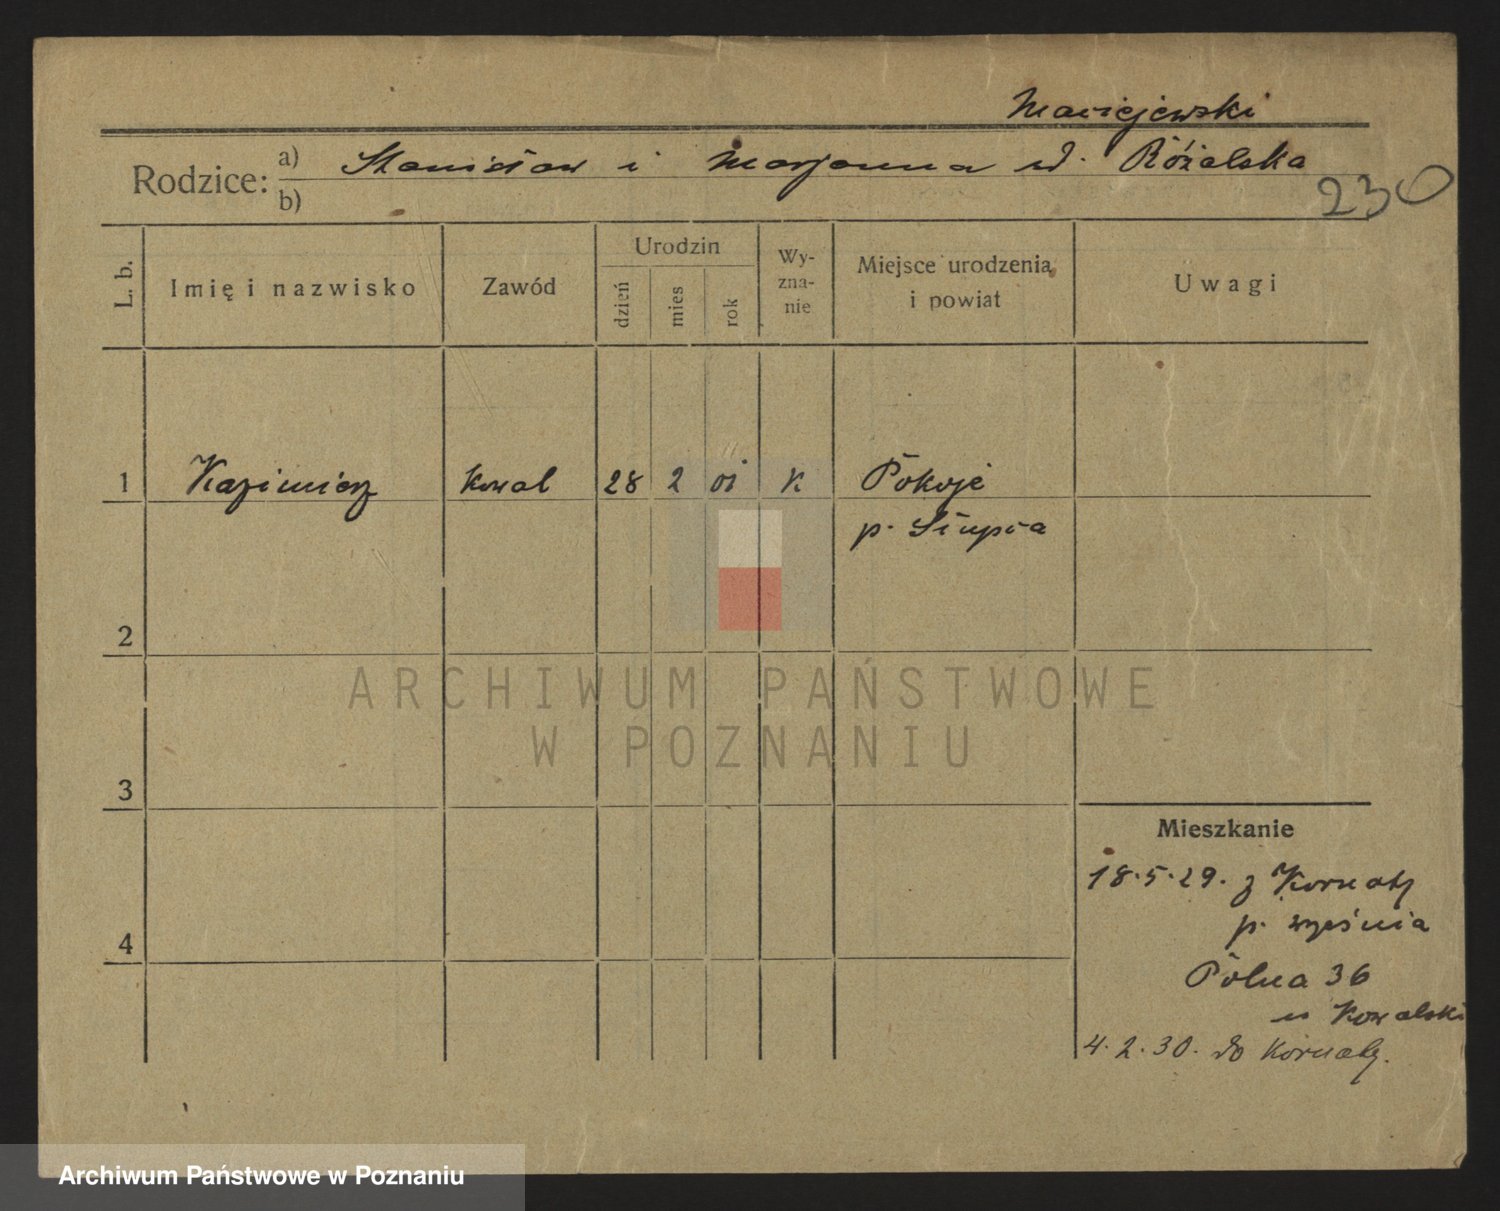 Maciejewski
Rodzice: a) Stanisław i Marjanna ur. Różalska
b)
230
L. b. Imię i nazwisko Zawód Urodzin dzień mies rok Wy-zna-nie Miejsce urodzenia i powiat Uwagi
1 Kazimierz kowal 28 2 01 K Pokoje
p. Słupca
2
ARCHIWUM PAŃSTWOWE
W POZNANIU
3
Mieszkanie
18.5.29. z Kornaty
p. września
4
Polna 36
u Kowalski
4.2.30. do Kornaty.
Archiwum Państwowe w Poznaniu